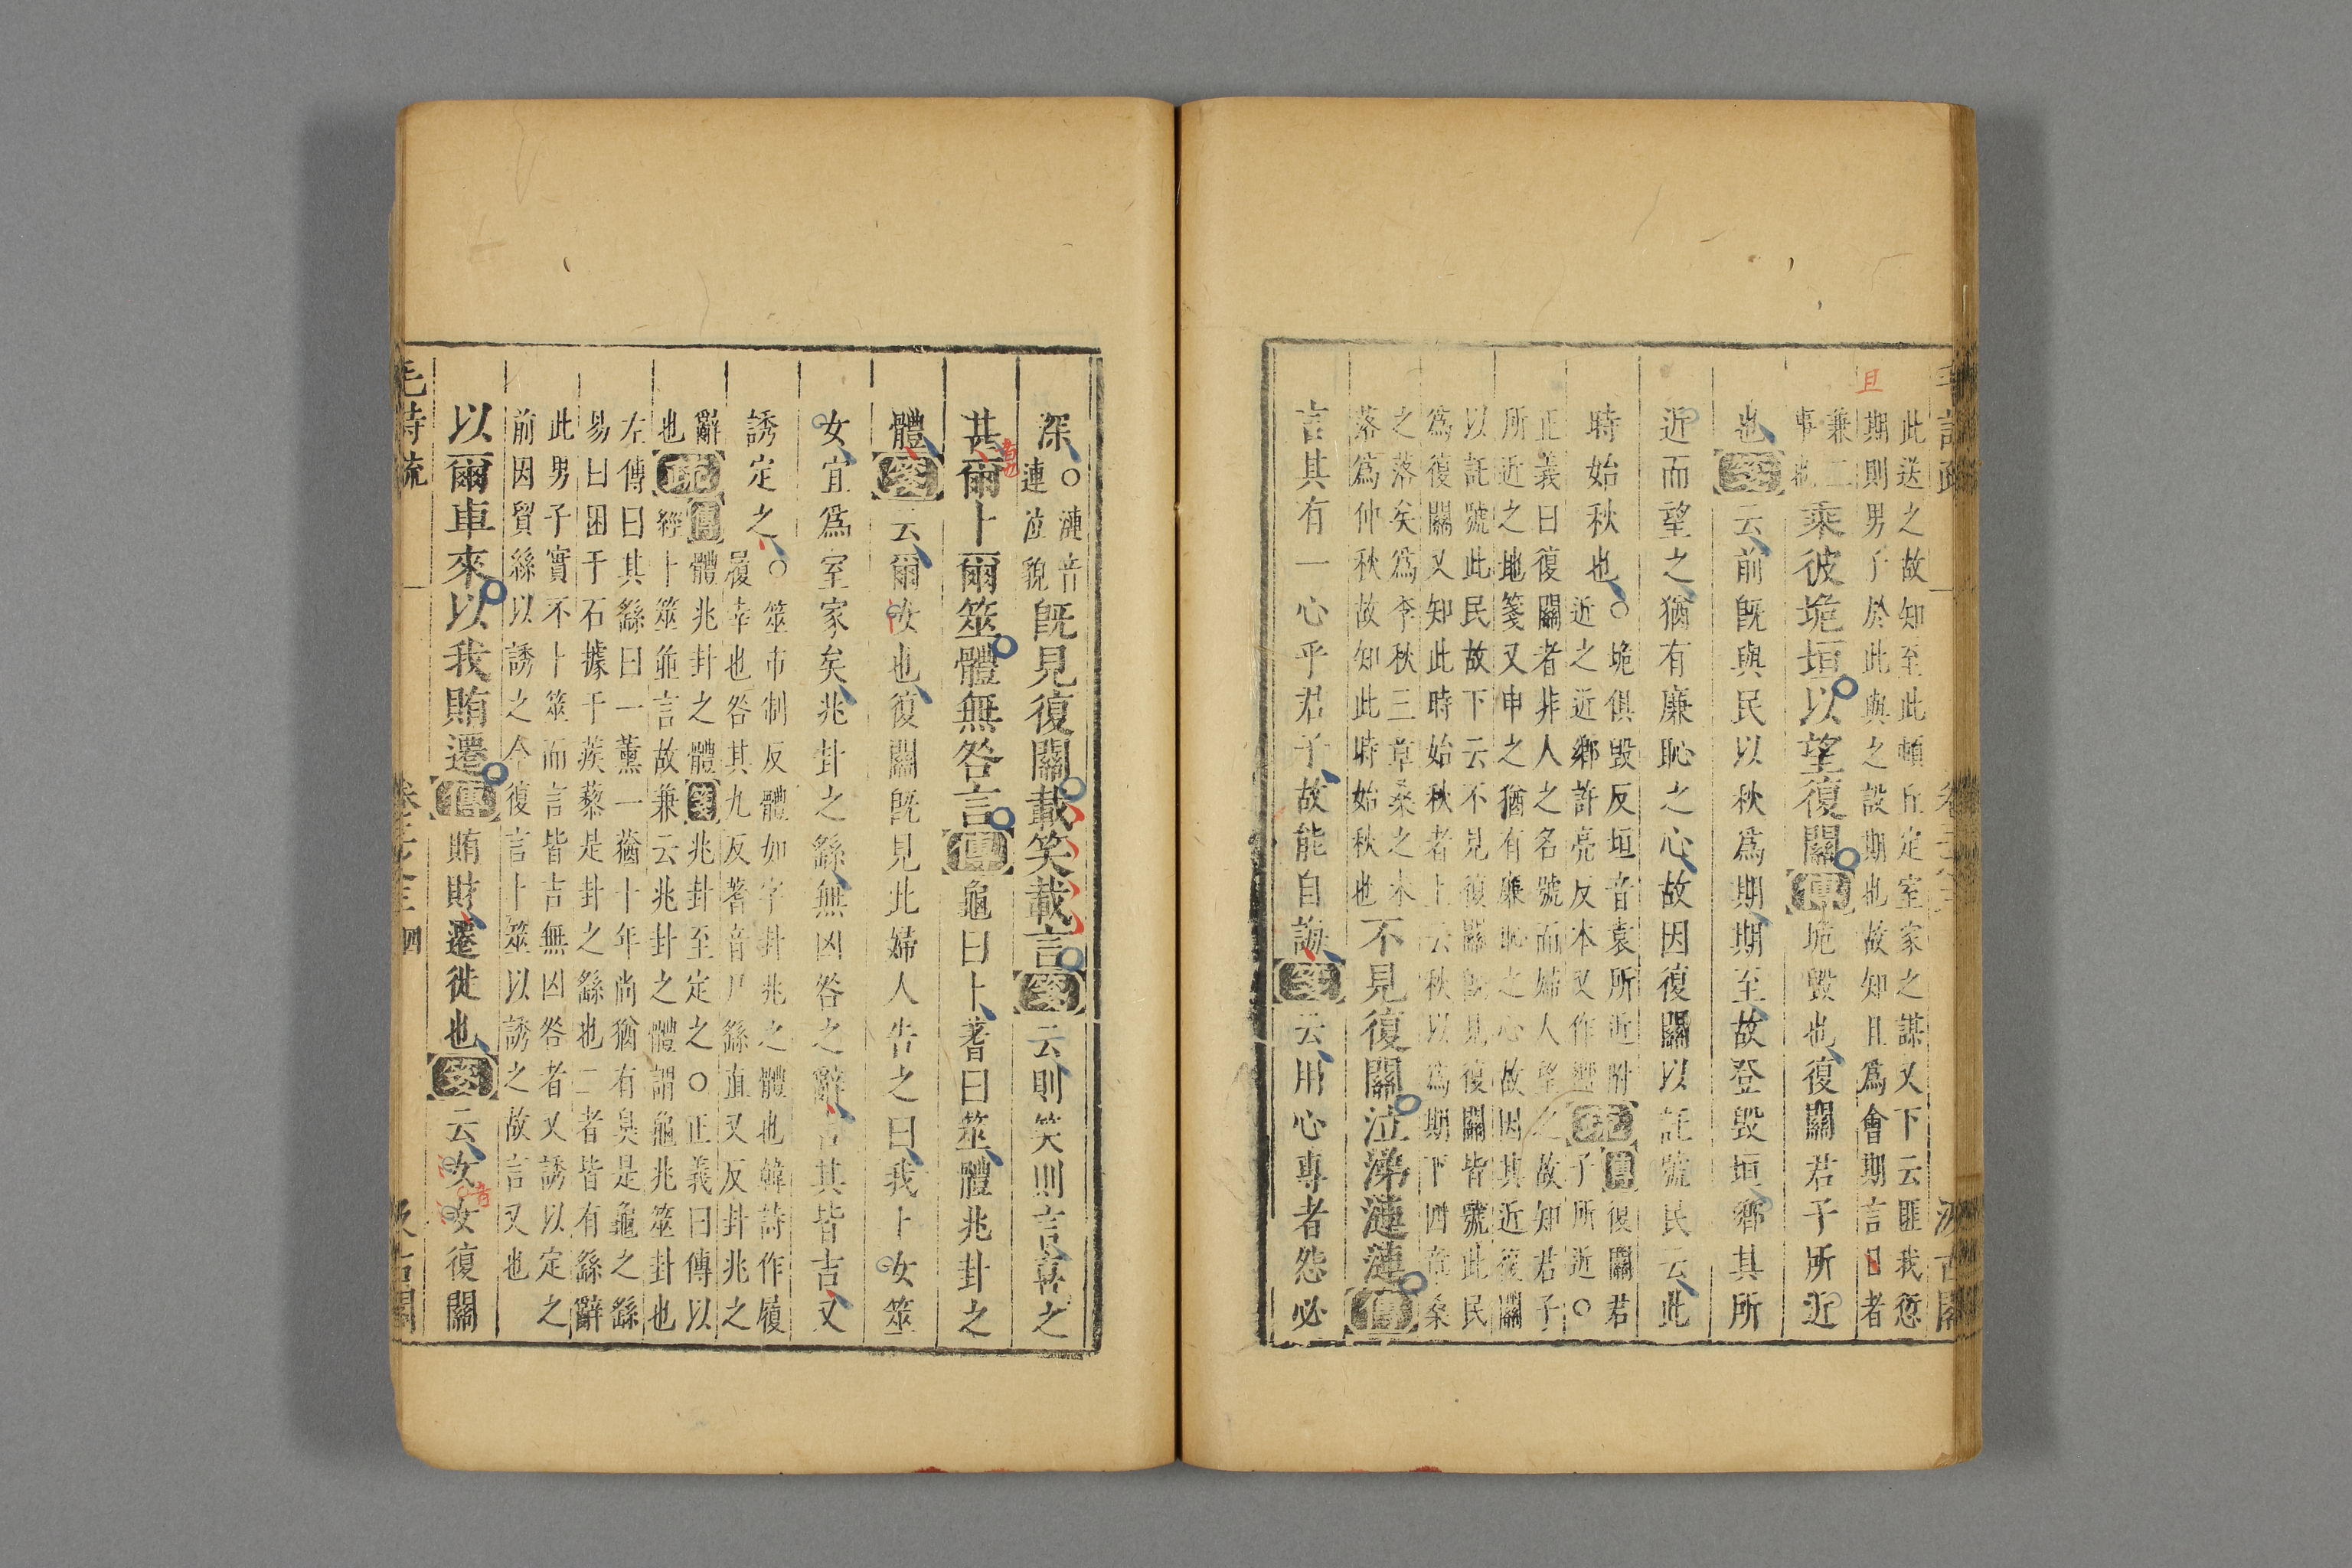 此送之故知至此頓丘定室家之謀又下云匪我愆
期則男子於此與之設期也故知且爲會期言日者
且
兼二
事也
乘彼垝垣以望復關傳垝毀也復關君子所近
也箋云前旣與民以秋爲期期至故登毀垣鄉其所
近而望之猶有廉恥之心故因復關以託號民云此
時始秋也
○垝俱毀反垣音袁所近附
近之近鄉許亮反本又作嚮
疏傳復關君
子所近○
正義曰復關者非人之名號而婦人望之故知君子
所近之地箋又申之猶有廉恥之心故因其近復關
以託號此民故下云不見復關旣見復關皆號此民
爲復關又知此時始秋者上云秋以爲期下四章桑
之落矣爲季秋三章桑之未
落爲仲秋故知此時始秋也
不見復關泣涕漣漣傳
言其有一心乎君子故能自誨箋云用心專者怨必
深
○漣音
連泣貌
旣見復關載笑載言箋云則笑則言喜之
甚爾卜爾筮體無咎言傳龜曰卜蓍曰筮體兆卦之
體箋云爾汝也復關旣見此婦人告之曰我卜女筮
女宜爲室家矣兆卦之繇無凶咎之辭言其皆吉又
誘定之
○筮市制反體如字卦兆之體也韓詩作履
履幸也咎其九反蓍音尸繇直又反卦兆之
辭
也
疏傳體兆卦之體箋兆卦至定之○正義曰傳以
經卜筮並言故兼云兆卦之體謂龜兆筮卦也
左傳曰其繇曰一薰一蕕十年尚猶有臭是龜之繇
易曰困于石據于蒺藜是卦之繇也二者皆有繇辭
此男子實不卜筮而言皆吉無凶咎者又誘以定之
前因貿絲以誘之今復言卜筮以誘之故言又也
以爾車來以我賄遷傳賄財遷徙也箋云女女復關
毛詩疏
卷三之三
四
汲古閣